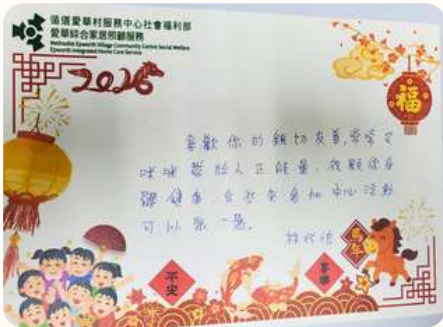 循道愛華村服務中心社會福利部
愛華綜合家居照顧服務
Methodist Epworth Village Community Centre Social Welfare
Epworth Integrated Home Care Service
2026
福
喜歡你的親切友善,常常笑
咪咪給人正能量,祝願你身
體健康,多些來參加中心活動
可以聚一聚。
馬年
平安